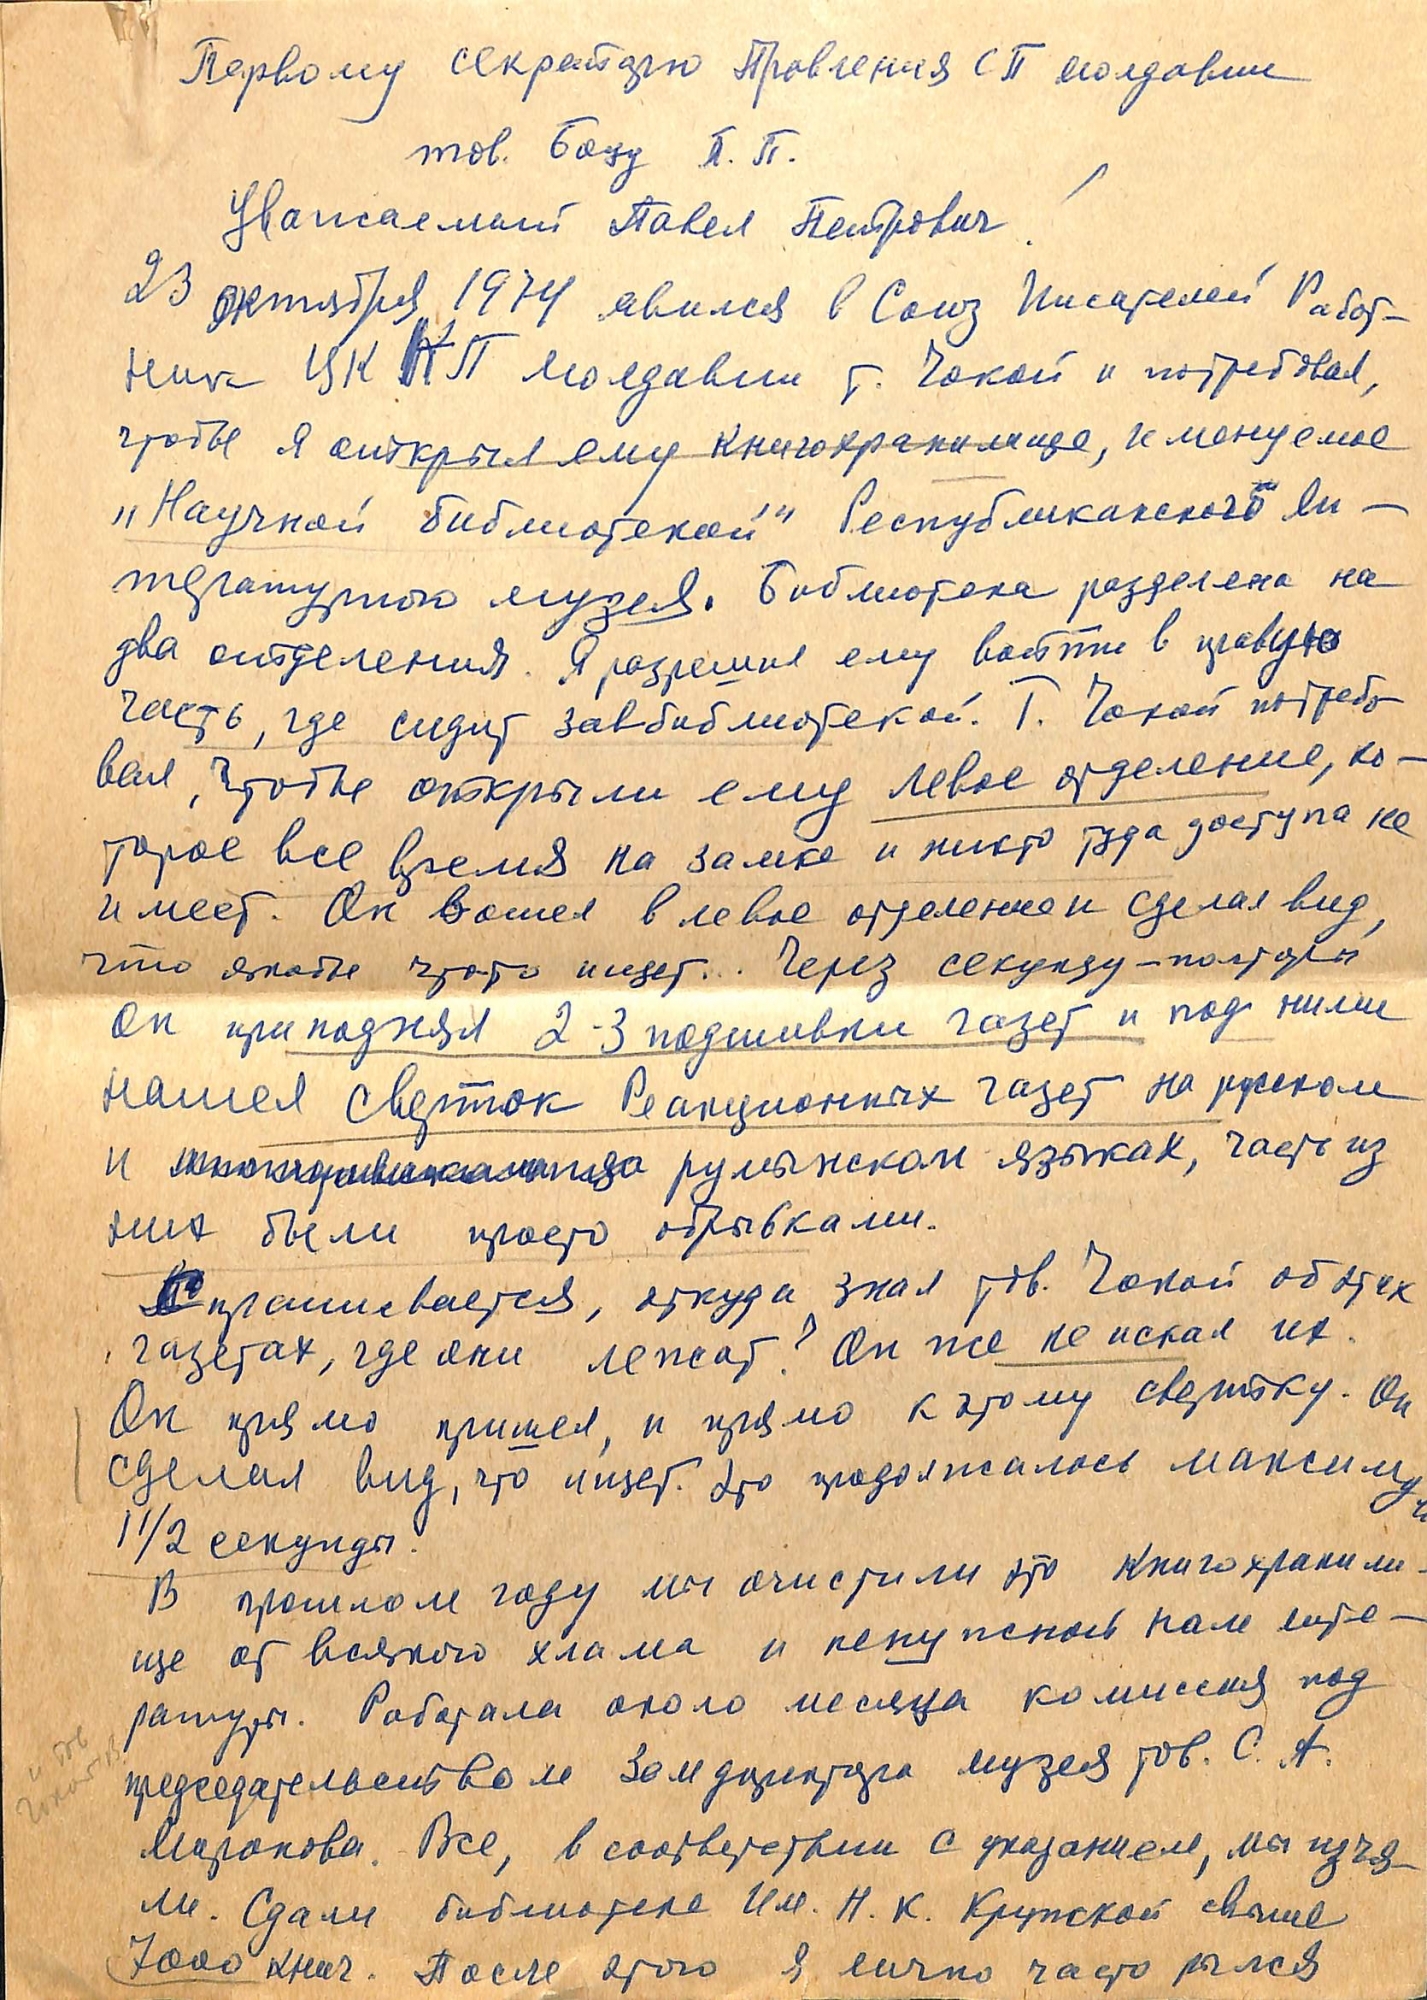 Первому секретарю Правления СП Молдавии
тов. Боцу П. П.
Уважаемый Павел Петрович!
23 октября 1974 явился в Союз Писателей Работ-
ник ЦК КП Молдавии т. Чокой и потребовал,
чтобы я открыл ему книгохранилище, именуемое
"Научной библиотекой" Республиканского Ли-
тературного музея. Библиотека разделена на
два отделения. Я разрешил ему войти в правую
часть, где сидит завбиблиотекой. Т. Чокой потребо-
вал, чтобы открыли ему левое отделение, ко-
торое все время на замке и никто туда доступа не
имеет. Он вошел в левое отделение и сделал вид,
что якобы чтото ищет... Через секунду-полторы
Он приподнял 2-3 подшивки газет и под ними
нашел сверток Реакционных газет на русском
и румынском языках, часть из
них были просто обрывками.
Спрашивается, откуда знал тов. Чокой об этих
газетах, где они лежат? Он же не искал их.
Он прямо пришел, и прямо к этому свертку. Он
сделал вид, что ищет. Это продолжалось максимум
1 1/2 секунды.
В прошлом году мы очистили это книгохранили-
ще от всякого хлама и ненужной нам лите-
ратуры. Работала около месяца комиссия под
председательством Замдиректора музея тов. С. А.
Миронова. Все, в соответствии с указанием, мы изъя-
ли. Сдали библиотеке Им. Н. К. Крупской свыше
7000 книг. После этого я лично часто рылся